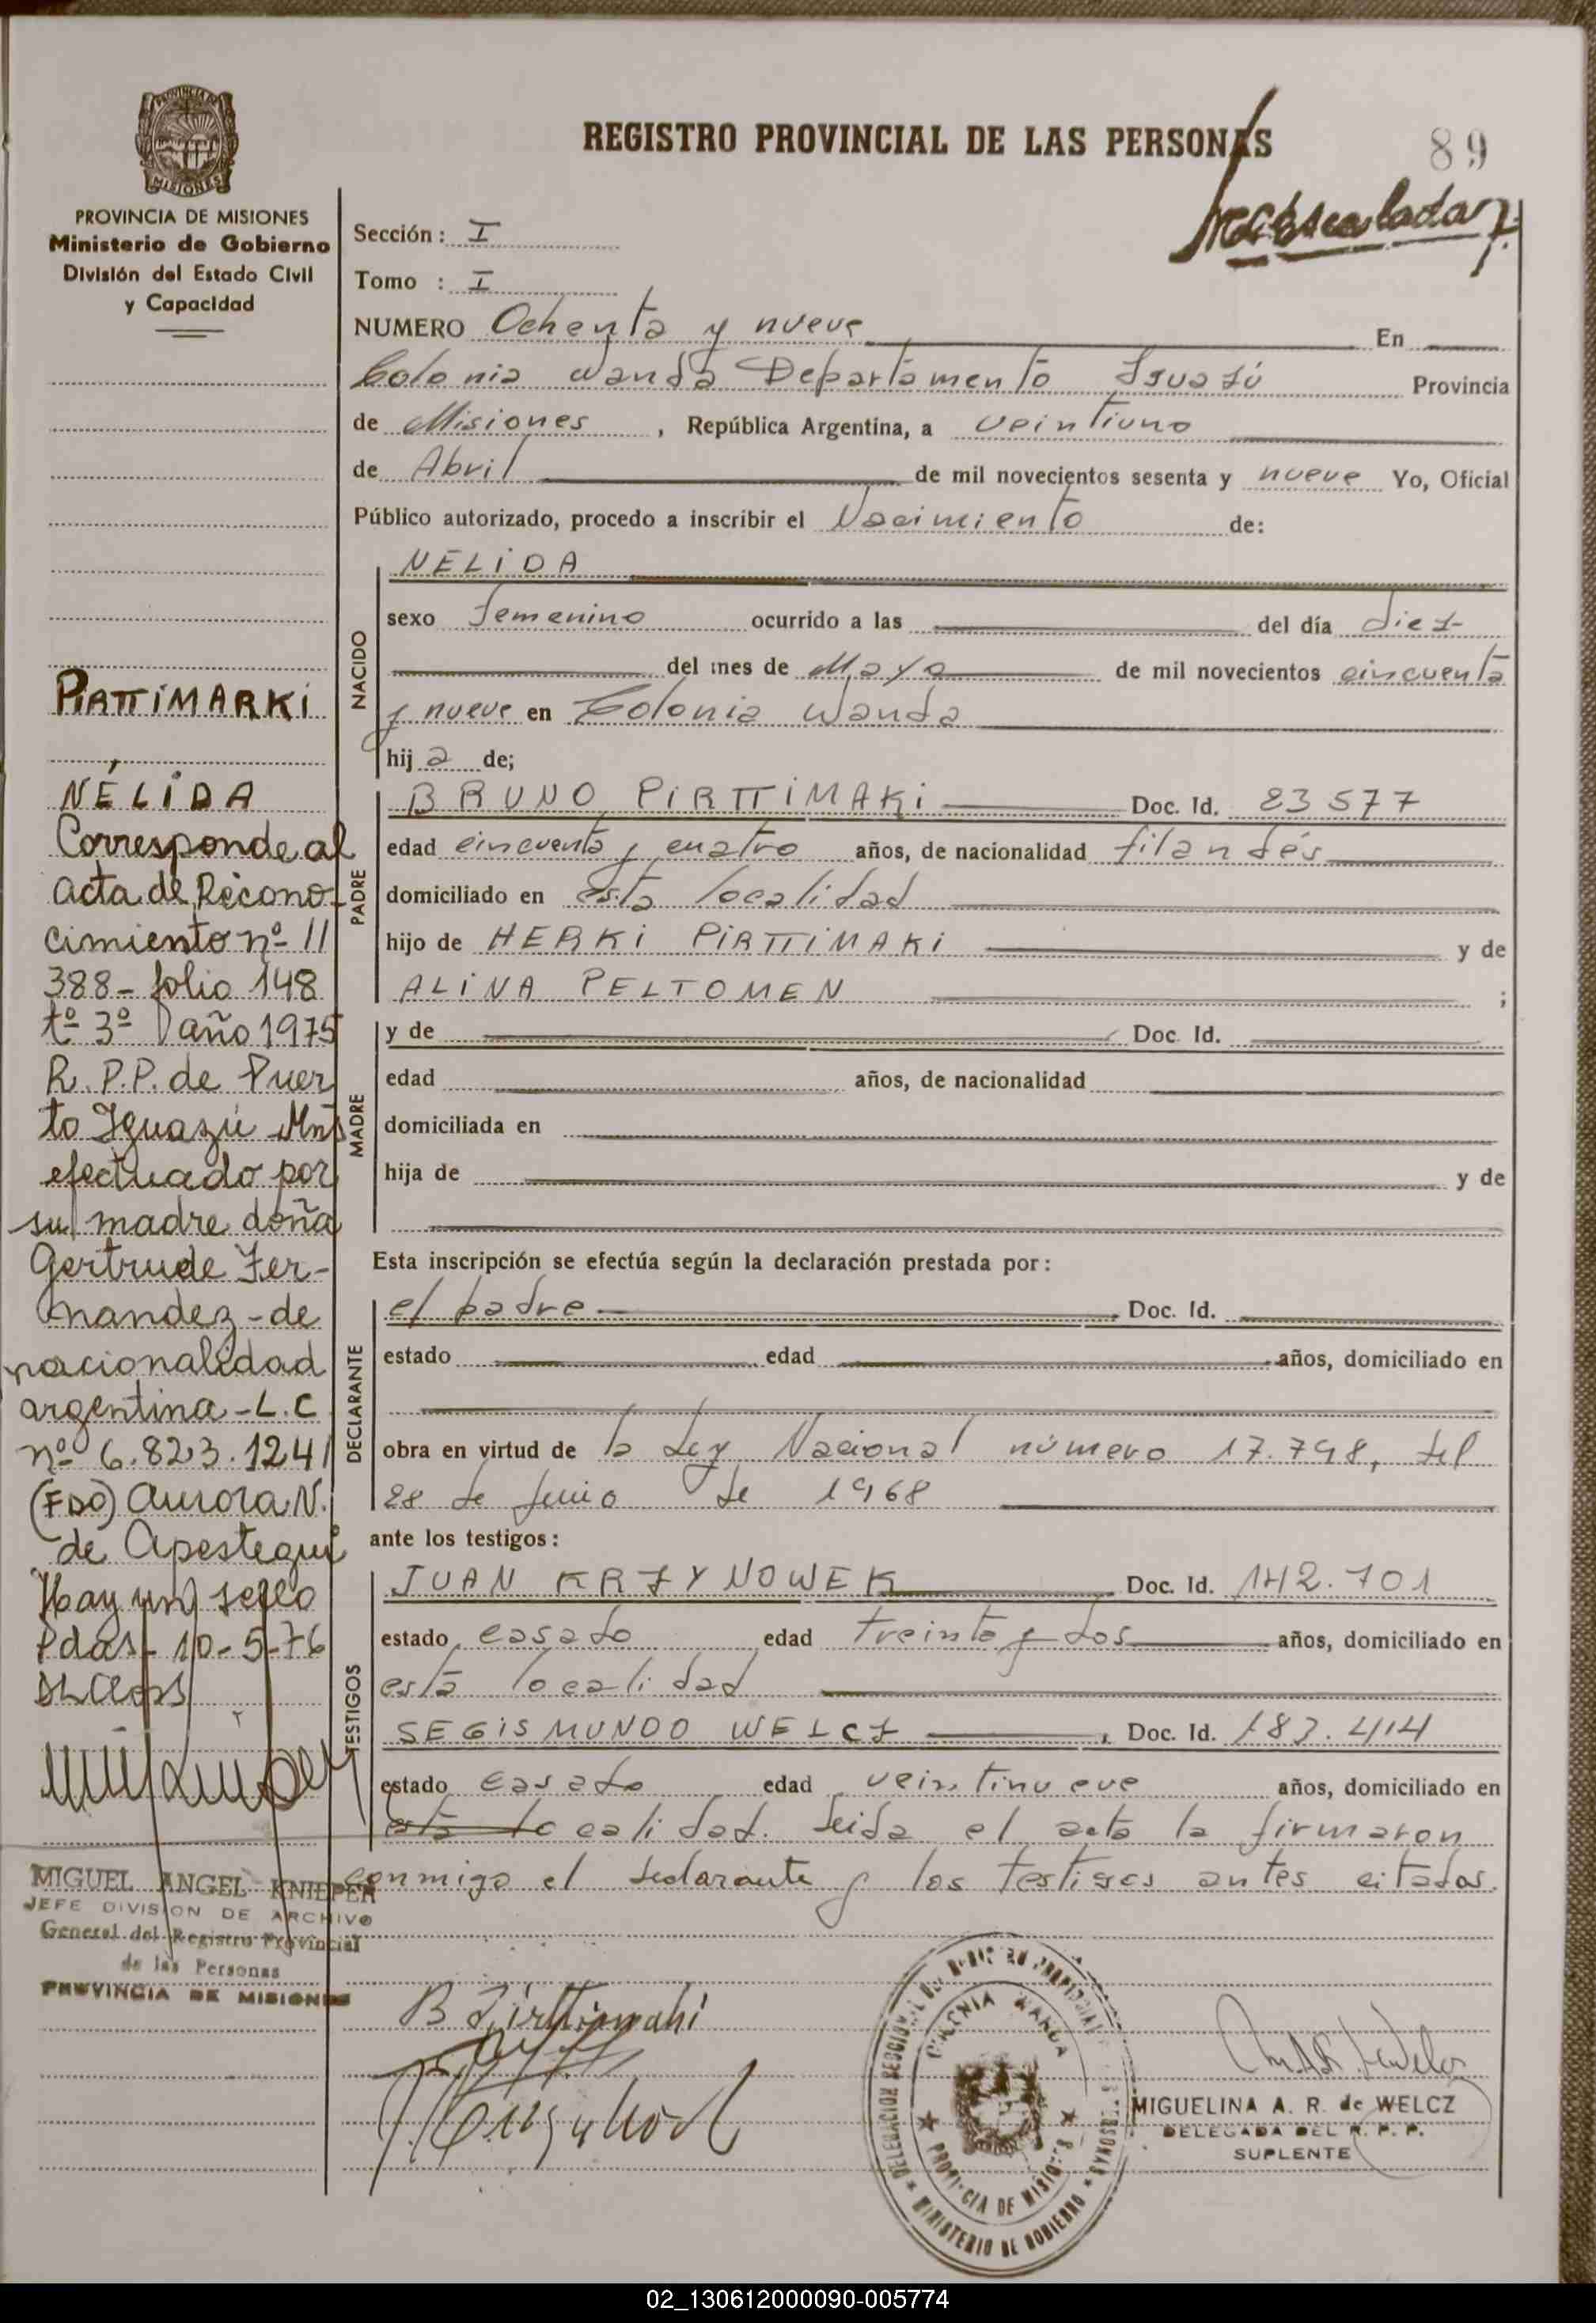 PROVINCIA DE MISIONES
Ministerio de Gobierno
División del Estado Civil
y Capacidad
REGISTRO PROVINCIAL DE LAS PERSONAS
89
Sección: I
Tomo : I
NUMERO Ochenta y nueve En
Colonia Wanda Departamento Iguazú Provincia
de Misiones , República Argentina, a veintiuno
de Abril de mil novecientos sesenta y nueve Yo, Oficial
Público autorizado, procedo a inscribir el Nacimiento de:
NACIDO
NELIDA
sexo femenino ocurrido a las del día diez
del mes de Mayo de mil novecientos cincuenta
y nueve en Colonia Wanda
hij a de;
PADRE
BRUNO PIRTTIMAKI Doc. Id. 83577
edad cincuenta y cuatro años, de nacionalidad filandés
domiciliado en esta localidad
hijo de HERKI PIRTTIMAKI y de
ALINA PELTOMEN ;
MADRE
y de Doc. Id.
edad años, de nacionalidad
domiciliada en
hija de y de
Esta inscripción se efectúa según la declaración prestada por:
DECLARANTE
el padre Doc. Id.
estado edad años, domiciliado en
obra en virtud de la Ley Nacional número 17.798, del
28 de Junio de 1968
ante los testigos:
TESTIGOS
JUAN KRZYNOWEK Doc. Id. 142.701
estado casado edad treinta y dos años, domiciliado en
esta localidad
SEGISMUNDO WELCZ , Doc. Id. 183.414
estado casado edad veintinueve años, domiciliado en
esta localidad. Leida el acta la firmaron
conmigo el declarante y los testigos antes citados.
PIRTTIMARKI
NÉLIDA
Corresponde al
acta de Recono-
cimiento nº 11
388- folio 148
tº 3º año 1975
R. P.P. de Puer
to Iguazú Mnes
efectuado por
su madre doña
Gertrude Fer-
nandez - de
nacionalidad
argentina - L.C
nº 6.823.1241
(FDO) Aurora N.
de Apestegui
Hay un sello
Pdas - 10-5-76
MIGUEL ANGEL KNIEPER
JEFE DIVISION DE ARCHIVO
General del Registro Provincial
de las Personas
PROVINCIA DE MISIONES
B Pirttimaki
COLONIA WANDA
PROVINCIA DE MISIONES
MINISTERIO DE GOBIERNO
MIGUELINA A. R. de WELCZ
DELEGADA DEL R. P. P.
SUPLENTE
02_130612000090-005774